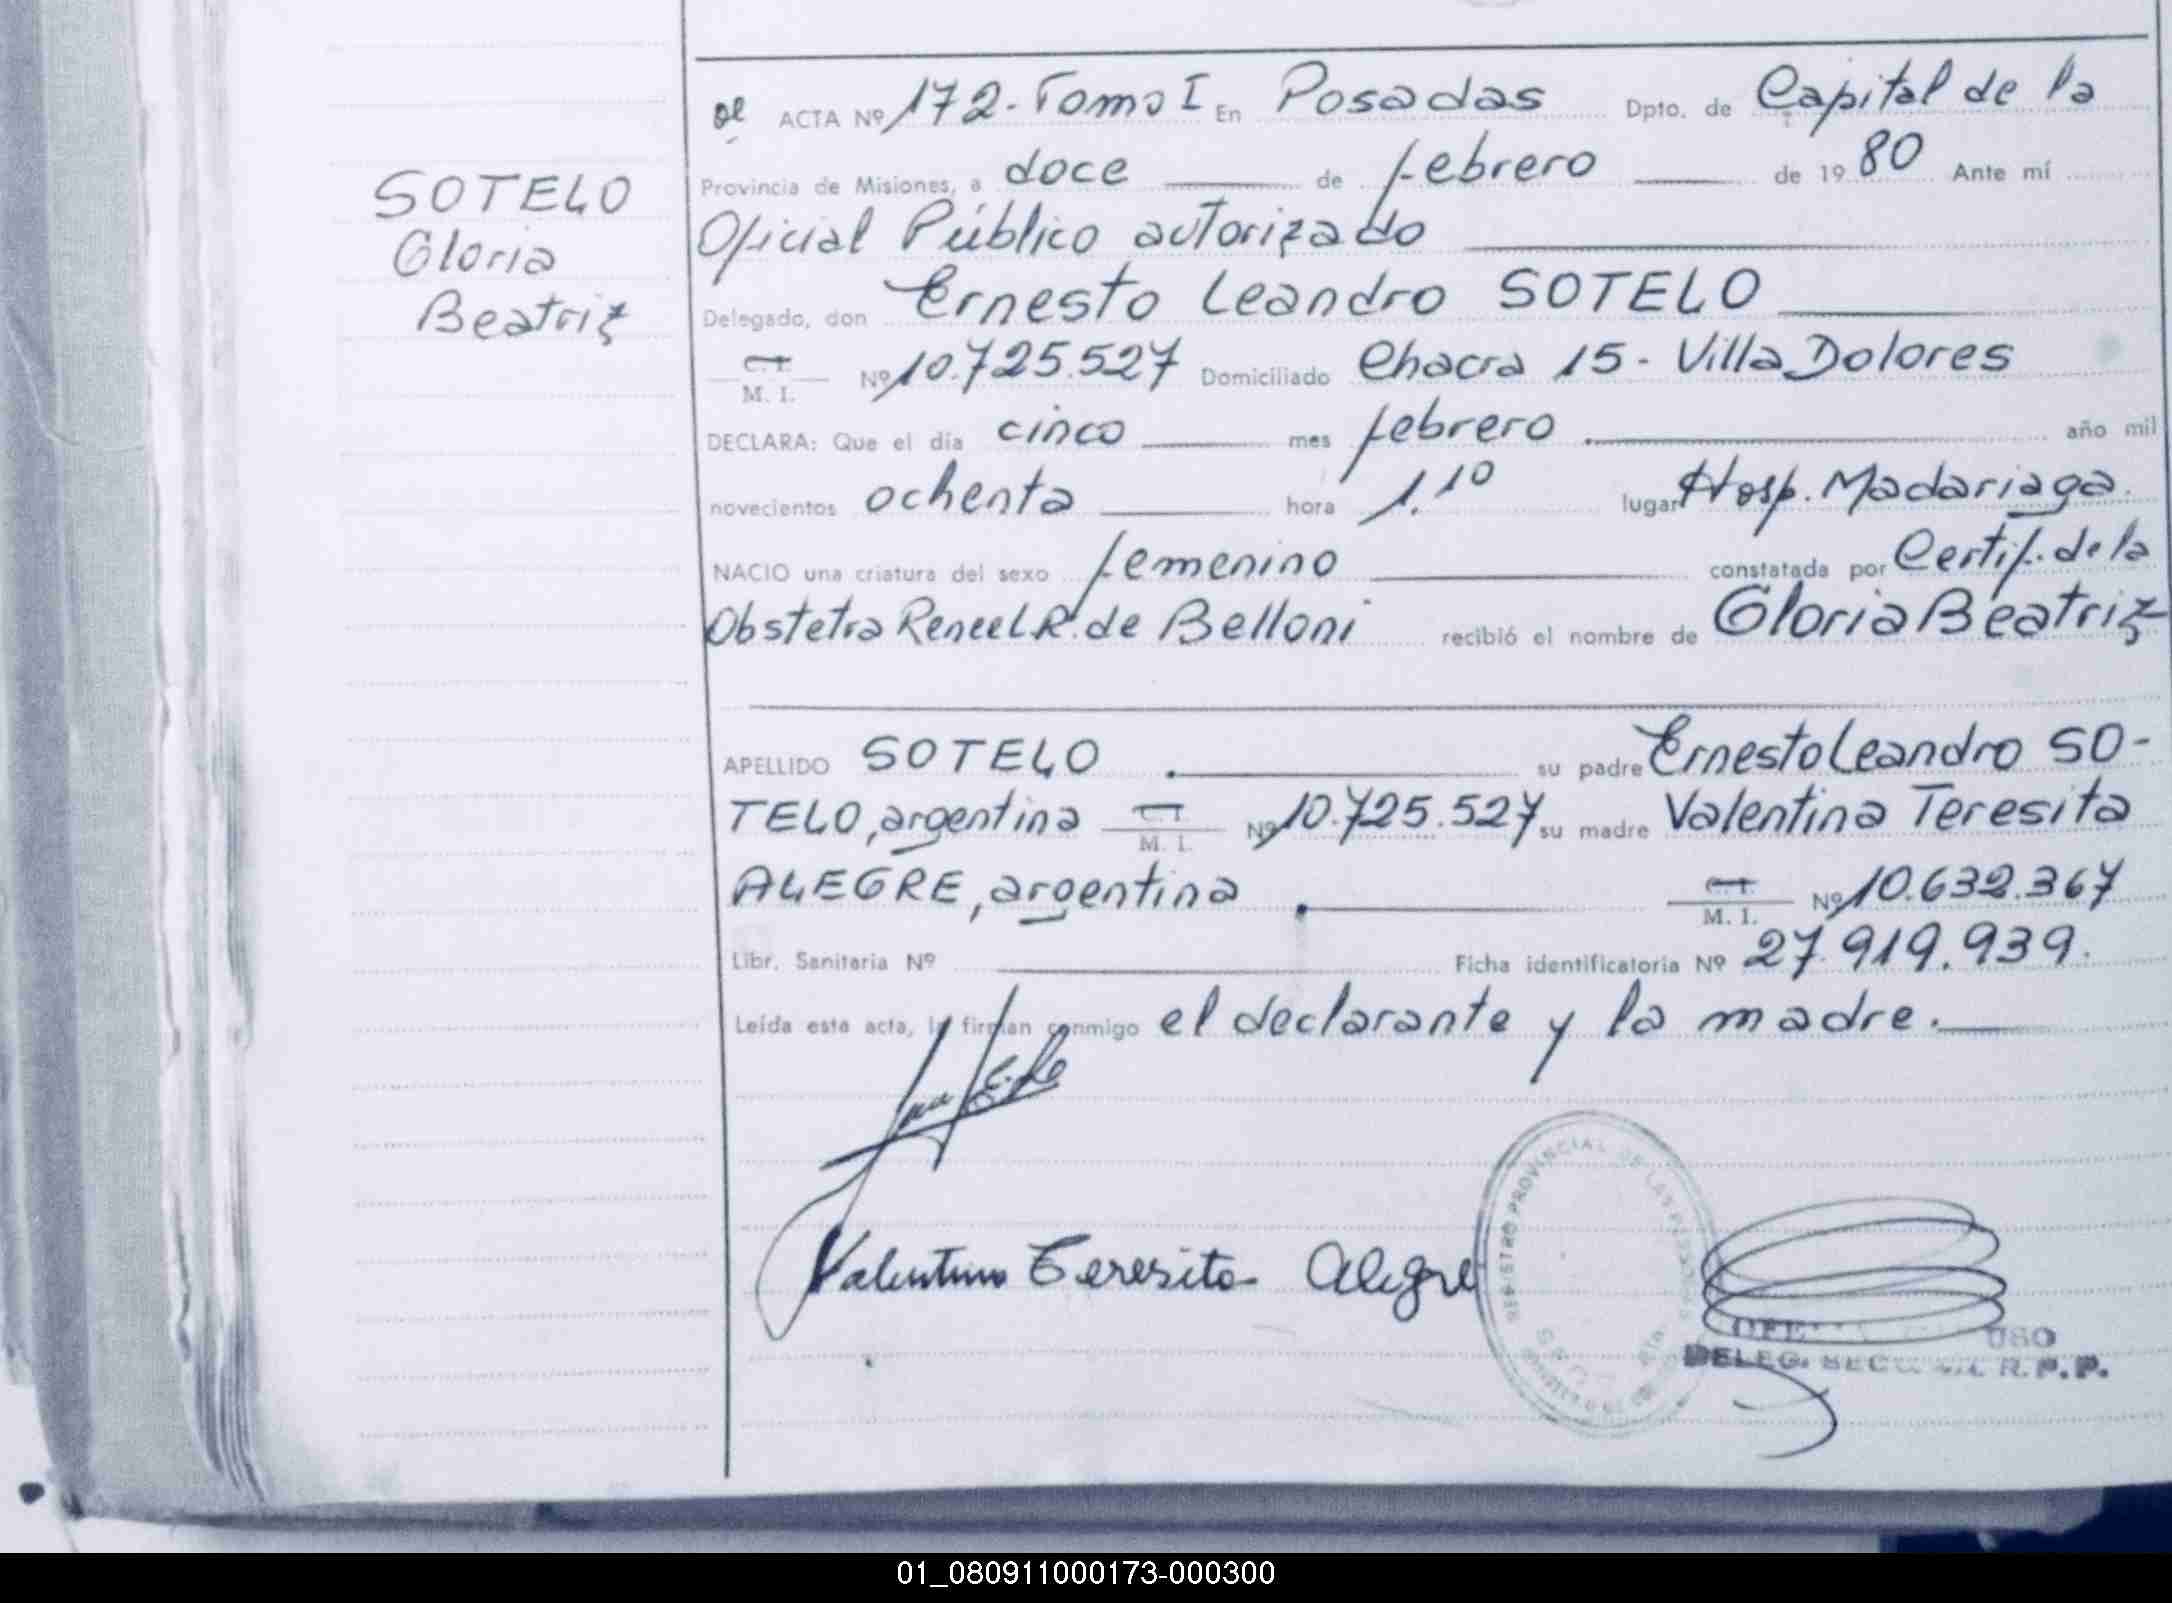 SOTELO
Gloria
Beatriz
ACTA Nº 172 - Tomo I En Posadas Dpto. de Capital de la
Provincia de Misiones, a doce de febrero de 1980 Ante mí
Oficial Público autorizado
Delegado, don Ernesto Leandro SOTELO
M. I. Nº 10.725.527 Domiciliado Chacra 15 - Villa Dolores
DECLARA: Que el día cinco mes febrero año mil
novecientos ochenta hora 1.10 lugar Hosp. Madariaga.
NACIO una criatura del sexo femenino constatada por Certif. de la
Obstetra R. de Belloni recibió el nombre de Gloria Beatriz
APELLIDO SOTELO su padre Ernesto Leandro SO-
TELO, argentina M. I. Nº 10.725.527 su madre Valentina Teresita
ALEGRE, argentina M. I. Nº 10.632.367
Libr. Sanitaria Nº Ficha identificatoria Nº 27.919.939.
Leída esta acta, la firman conmigo el declarante y la madre.
Valentina Teresita Alegre
REGISTRO PROVINCIAL DE LAS PERSONAS
DELEG. R. P. P.
01_080911000173-000300